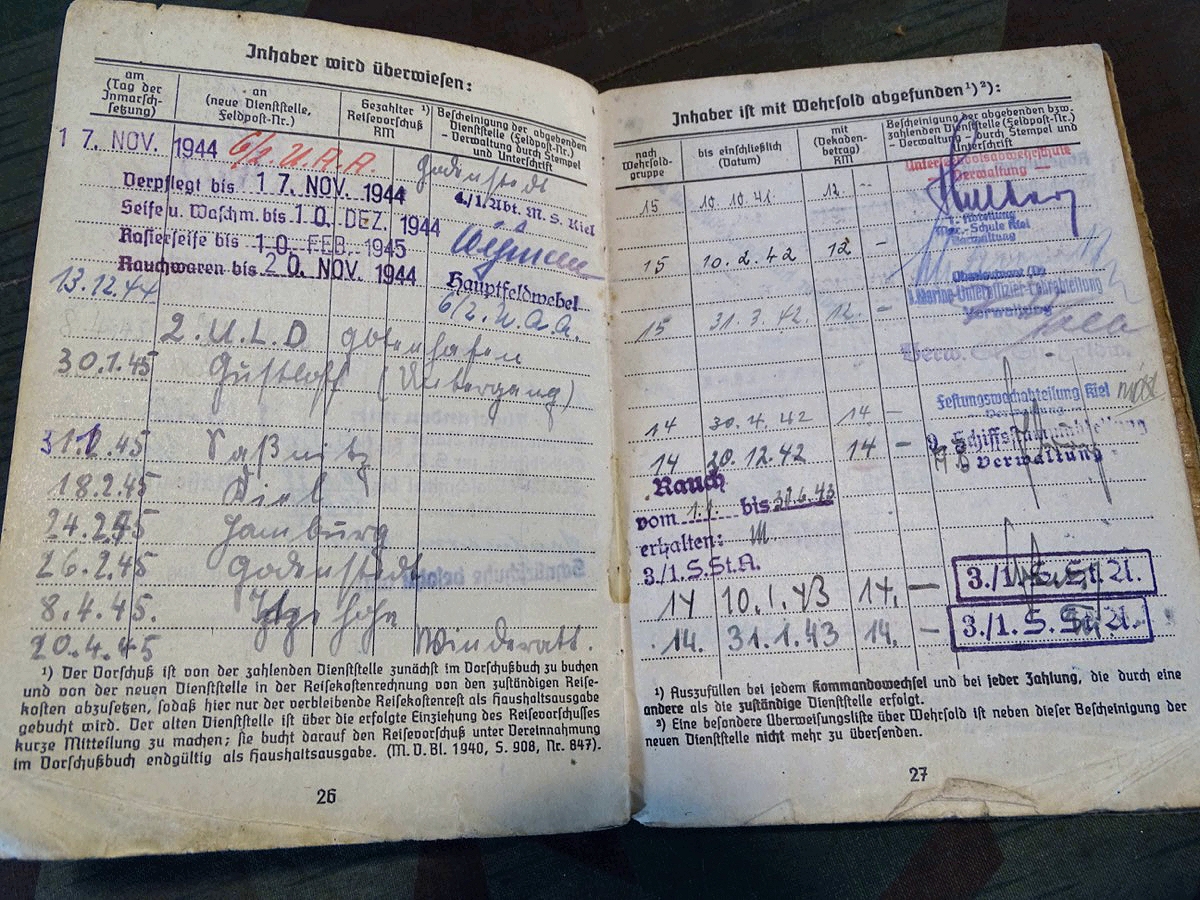 Inhaber wird überwiesen:
am
(Tag der
Inmarsch-
setzung)
an
(neue Dienststelle,
Feldpost-Nr.)
Gezahlter ¹)
Reisevorschuß
RM
Bescheinigung der abgebenden
Dienststelle (Feldpost-Nr.)
- Verwaltung - durch Stempel
und Unterschrift
17. NOV. 1944 6/2. U.A.A. Godenstedt
Verpflegt bis 17. NOV. 1944
4./1. Abt. M. S. Kiel
Seife u. Waschm. bis 10. DEZ. 1944
Rasierseife bis 10. FEB. 1945
Rauchwaren bis 20. NOV. 1944
Hauptfeldwebel
13.12.44 6/2. U.A.A.
2. U.L.D gotenhafen
30.1.45 Gustloff (Untergang)
31.1.45 Saßnitz
18.2.45 Kiel
24.2.45 Hamburg
26.2.45 Godenstedt
8.4.45. Itzehohe
20.4.45 Winderatt.
¹) Der Vorschuß ist von der zahlenden Dienststelle zunächst im Vorschußbuch zu buchen
und von der neuen Dienststelle in der Reisekostenrechnung von den zuständigen Reise-
kosten abzusetzen, sodaß hier nur der verbleibende Reisekostenrest als Haushaltsausgabe
gebucht wird. Der alten Dienststelle ist über die erfolgte Einziehung des Reisevorschusses
kurze Mitteilung zu machen; sie bucht darauf den Reisevorschuß unter Vereinnahmung
im Vorschußbuch endgültig als Haushaltsausgabe. (M. D. Bl. 1940, S. 908, Nr. 847).
26
Inhaber ist mit Wehrsold abgefunden¹)²):
nach
Wehrsold-
gruppe
bis einschließlich
(Datum)
mit
(Dekaden-
betrag)
RM
Bescheinigung der abgebenden bzw.
zahlenden Dienststelle (Feldpost-Nr.)
- Verwaltung - durch Stempel und
Unterschrift
15 10.10.41. 12. --
Verwaltung
15 10.2.42 12 -
Mar.-Schule Kiel
Verwaltung
15 31.3.42. 12. -
1. Marine-Unteroffizier-Lehrabteilung
Verwaltung
14 30.4.42 14. -
Festungswachabteilung Kiel
Verwaltung
14 20.12.42 14 -
9. Schiffsstammabteilung
Verwaltung
Rauch
vom 1.1. bis 31.6.43
erhalten:
3./1. S.St.A.
14 10.1.43 14. — 3./1. S. St. A.
14. 31.1.43 14. — 3./1. S. St. A.
¹) Auszufüllen bei jedem Kommandowechsel und bei jeder Zahlung, die durch eine
andere als die zuständige Dienststelle erfolgt.
²) Eine besondere Überweisungsliste über Wehrsold ist neben dieser Bescheinigung der
neuen Dienststelle nicht mehr zu übersenden.
27